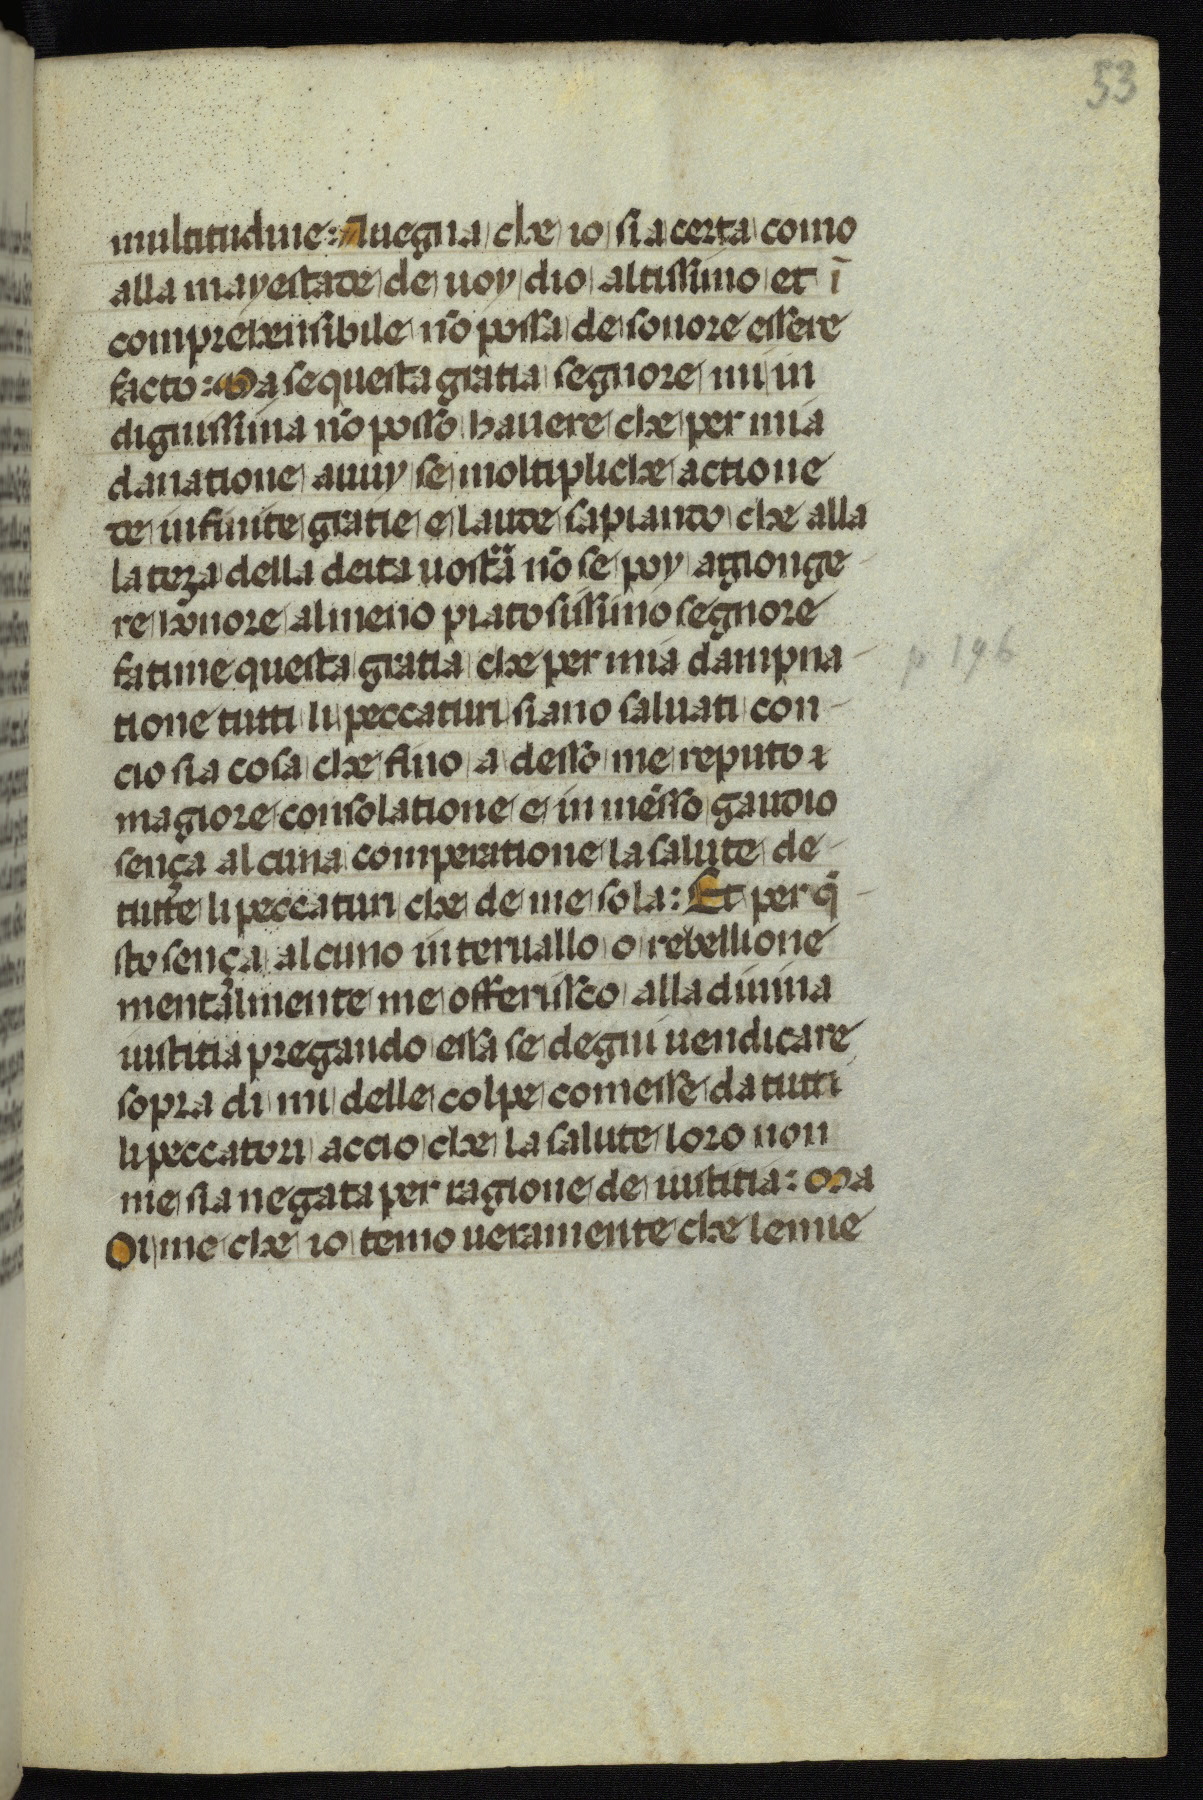 53
multitudine: Auegna che io sia certa como
alla mayestade de uoy dio altissimo et ī
comprehensibile nō possa desonore essere
facto: Ma se questa gratia segnore mi in
dignissima nō posso hauere che per mia
danatione auuy se moltipliche actione
de infinite gratie e laude sapiando che alla
lateza della deita uostrā nō se poy agionge
re honore almeno piatosissimo segnore
fatime questa gratia che per mia dampna
p 196
tione tutti li peccaturi siano saluati con
cio sia cosa che fino a desso me reputo a
magiore consolatione e inmēsso gaudio
sença alcuna comperatione la salute de
tutte li peccaturi che de me sola: Et per q̄
sto sença alcuno interuallo o rebellione
mentalmente me offerisco alla diuina
iustitia pregando essa se degni uendicare
sopra di mi delle colpe comesse da tutti
li peccatori accio che la salute loro non
me sia negata per ragione de iustitia: Ma
Oi me che io temo ueramente che le mie